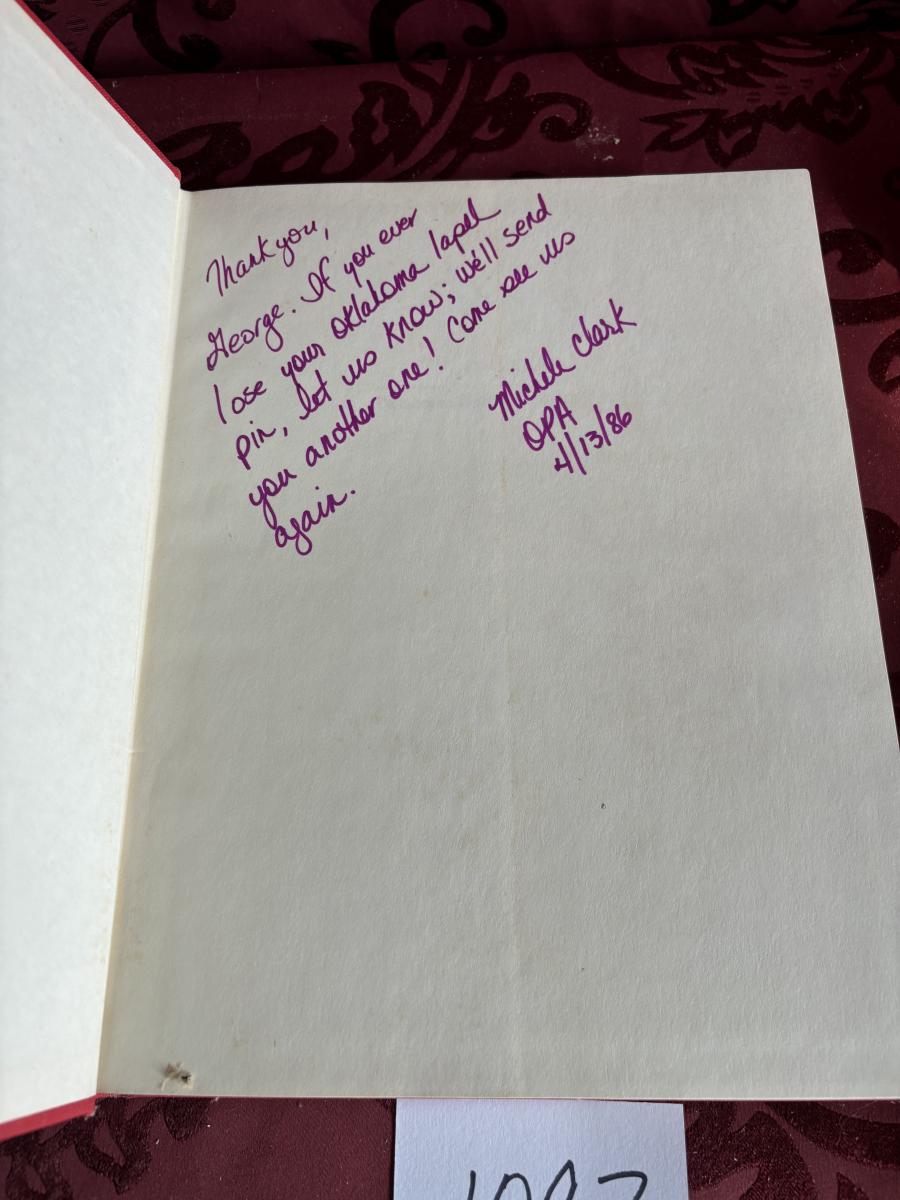 Thank you,
George. If you ever
lose your Oklahoma lapel
pin, let us know; we'll send
you another one! Come see us
again.
Michele Clark
OPA
4/13/86